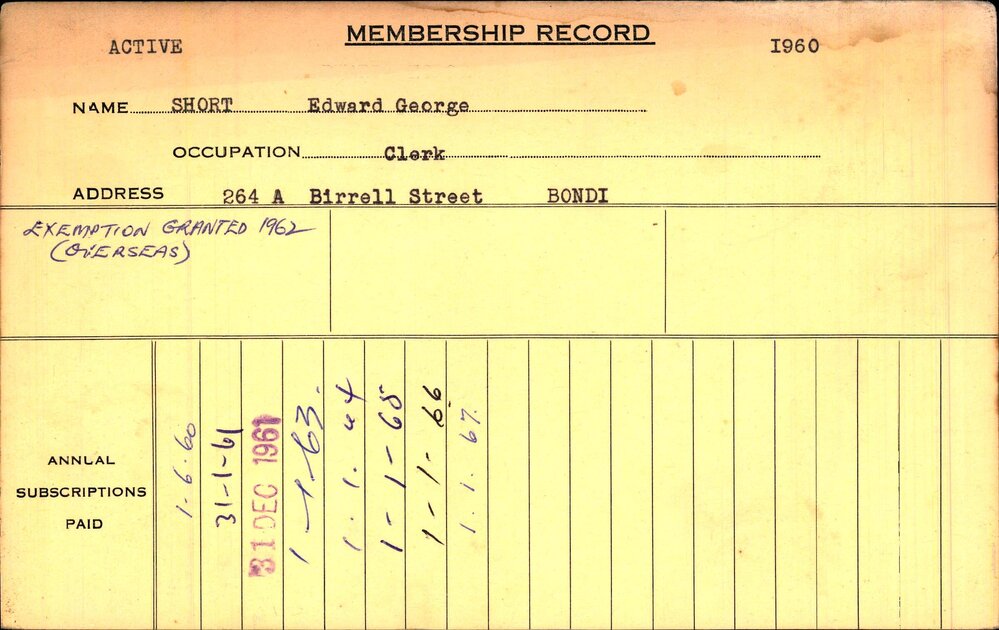 ACTIVE MEMBERSHIP RECORD 1960
NAME SHORT Edward George
OCCUPATION Clerk
ADDRESS 264 A Birrell Street BONDI
EXEMPTION GRANTED 1962
(OVERSEAS)
ANNUAL
SUBSCRIPTIONS
PAID
1-6-60
31-1-61
31 DEC 1961
1-1-63.
1.1.64
1-1-65
1-1-66
1.1.67.